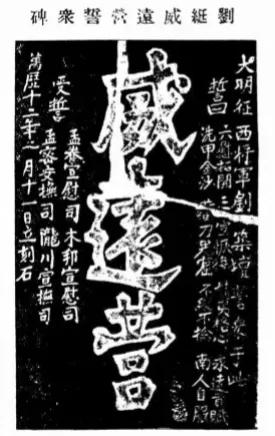 劉綎威遠營誓眾碑
大明征西將軍劉築壇誓眾于此
誓曰
六慰拓開 三宣恢復 諸夷格心 永遠貢賦
洗甲金沙 藏刀鬼窟 不縱不擒 南人自服
威遠營
受誓
孟養宣慰司 木邦宣慰司
孟密安撫司 隴川宣撫司
萬歷十二年二月十一日立刻石